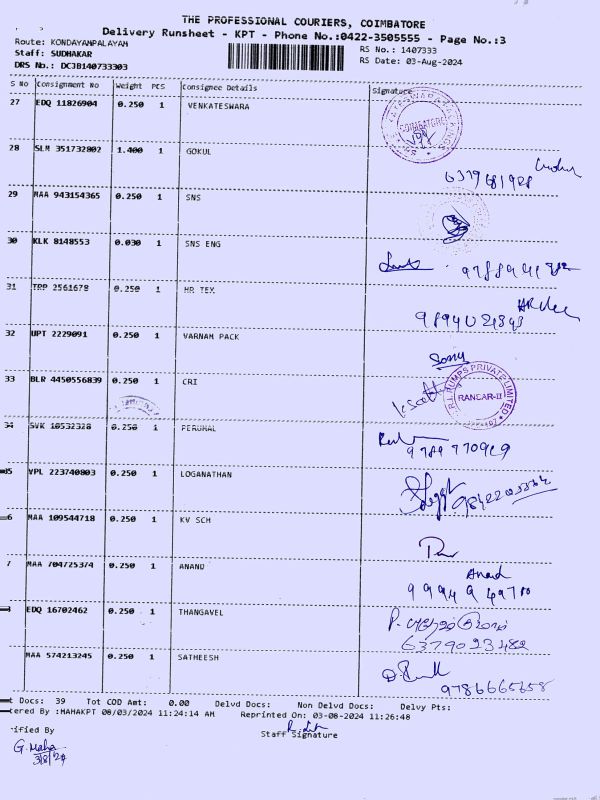 THE PROFESSIONAL COURIERS, COIMBATORE
Delivery Runsheet - KPT - Phone No.:0422-3505555 - Page No.:3
Route: KONDAYAMPALAYAM
RS No.: 1407333
Staff: SUDHAKAR
RS Date: 03-Aug-2024
DRS No.: DCJB140733303
S No Consignment No Weight PCS Consignee Details Signature
27 EDQ 11826904 0.250 1 VENKATESWARA
COIMBATORE
28 SLM 351732802 1.400 1 GOKUL
29 MAA 943154365 0.250 1 SNS
30 KLK 8148553 0.030 1 SNS ENG
31 TRP 2561678 0.250 1 HR TEX
32 UPT 2229091 0.250 1 VARNAM PACK
33 BLR 4450556839 0.250 1 CRI
PUMPS PRIVATE LIMITED
RANGAR-II
34 SVK 10532328 0.250 1 PERUMAL
35 VPL 223740803 0.250 1 LOGANATHAN
6 MAA 109544718 0.250 1 KV SCH
7 MAA 704725374 0.250 1 ANAND
Anand
EDQ 16702462 0.250 1 THANGAVEL
6379023482
MAA 574213245 0.250 1 SATHEESH
9786665658
t Docs: 39 Tot COD Amt: 0.00 Delvd Docs: Non Delvd Docs: Delvy Pts:
cered By :MAHAKPT 08/03/2024 11:24:14 AM Reprinted On: 03-08-2024 11:26:48
ified By
Staff Signature
G. Maha
3/8/24